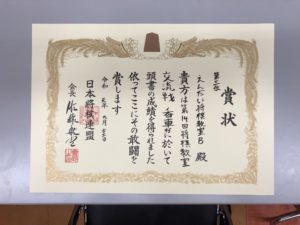 賞状
えんたい将棋教室B 殿
貴方は第14回将棋教室
交流戦 に於いて
頭書の成績を得られました
依ってここにその敢闘を
賞します
令和
日本将棋連盟
会長 佐藤康光